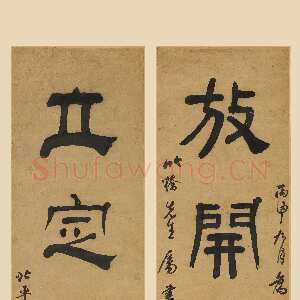 放開
丙申九月為
先生屬書
立定
Shufawang.CN